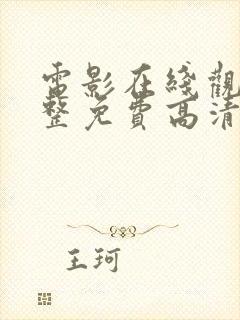 電影在綫觀
整免費高清
王珂